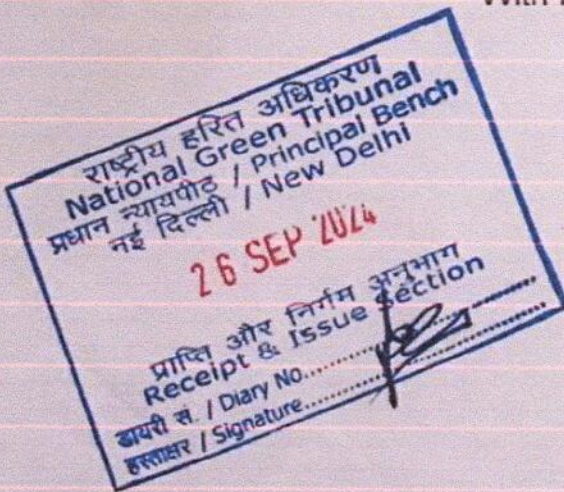 राष्ट्रीय हरित अधिकरण
National Green Tribunal
प्रधान न्यायपीठ / Principal Bench
नई दिल्ली / New Delhi
26 SEP 2024
प्राप्ति और निर्गम अनुभाग
Receipt & Issue Section
डायरी स. / Diary No..........
हस्ताक्षर / Signature..........